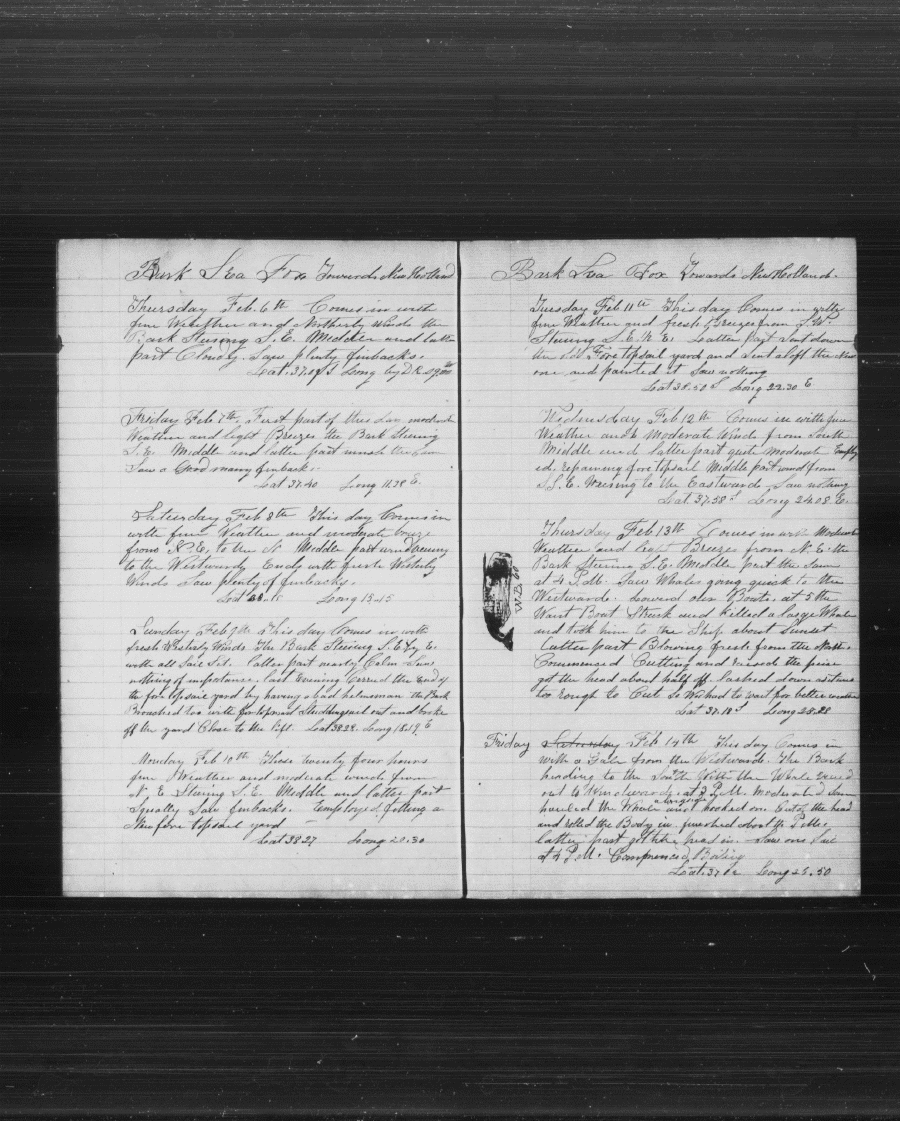 Bark Sea Fox Towards New Holland
Thursday Feb. 6th Comes in with
fine Weather and Northerly Winds the
Bark Steering S.E. Middle and latter
part Cloudy. Saw plenty finbacks.
Lat. 37.07 S Long by D.R.
Friday Feb 7th, First part of this day moderate
Weather and light Breezes the Bark Steering
S.E. Middle and latter part much the same
Saw a Good many finbacks.
Lat 37.40 Long 11.38 E.
Saturday Feb 8th This day Comes in
with fine Weather and moderate breeze
from N.E. to the N Middle part
to the Westward Ends with fresh Westerly
Winds Saw plenty of finbacks.
Lat Long 15.15
Sunday Feb 9th This day Comes in with
fresh Westerly Winds. The Bark Steering S.E. by E.
with all Sail Set. latter part nearly Calm Saw
nothing of importance. last Evening Carried the End of
the fore topsail yard by having a bad helmsman the Bark
Broached too with foretopmast Studdingsail out and broke
off the yard Close to the lift. Lat 38.28. Long 18.19 E
Monday Feb 10th These twenty four hours
fine Weather and moderate winds from
N. E Steering S.E. Middle and latter part
Squally Saw finbacks. Employed fitting a
New fore topsail yard
Lat 38 27 Long 20.30
Bark Sea Fox Towards New Holland.
Tuesday Feb 11th This day Comes in with
fine Weather and fresh Breezes from S.W.
Steering S.E. Latter part Sent down
the old Fore topsail yard and Sent aloft the New
one and painted it Saw nothing
Lat 38.50 S Long 22.30 E
Wednesday Feb 12th Comes in with fine
Weather and Moderate Winds from South
Middle and latter part quite moderate Employ
ed. repairing foretopsail Middle part wind from
S.S.E. Veering to the Eastward Saw nothing
Lat 37.58 S Long 24.08 E.
Thursday Feb 13th Comes in with Moderate
Weather and light Breezes from N.E. the
Bark Steering S.E. Middle part the Same
at 4 P.M. Saw Whales going quick to the
Westward. lowered our Boats. at 5 the
Waist Boat Struck and killed a large Whale
and took him to the Ship. about Sunset
Latter part Blowing fresh from the North
Commenced Cutting and raised the piece
got the head about half off lashed down as it was
too rough to Cut So We had to wait for better weather
W.B. 80
Lat 37.10 S Long 25.28
Friday Saturday Feb 14th This day Comes in
with a Gale from the Westward. The Bark
heading to the South With the Whale
out to Windward. at 2 P.M. Moderated Some
hauled the Whale alongside and hooked on. Cut off the head
and rolled the Body in. finished about P.M.
latter part got the head in. Saw one Sail
at 4 P.M. Commenced Boiling
Lat. 37 Long 25.50